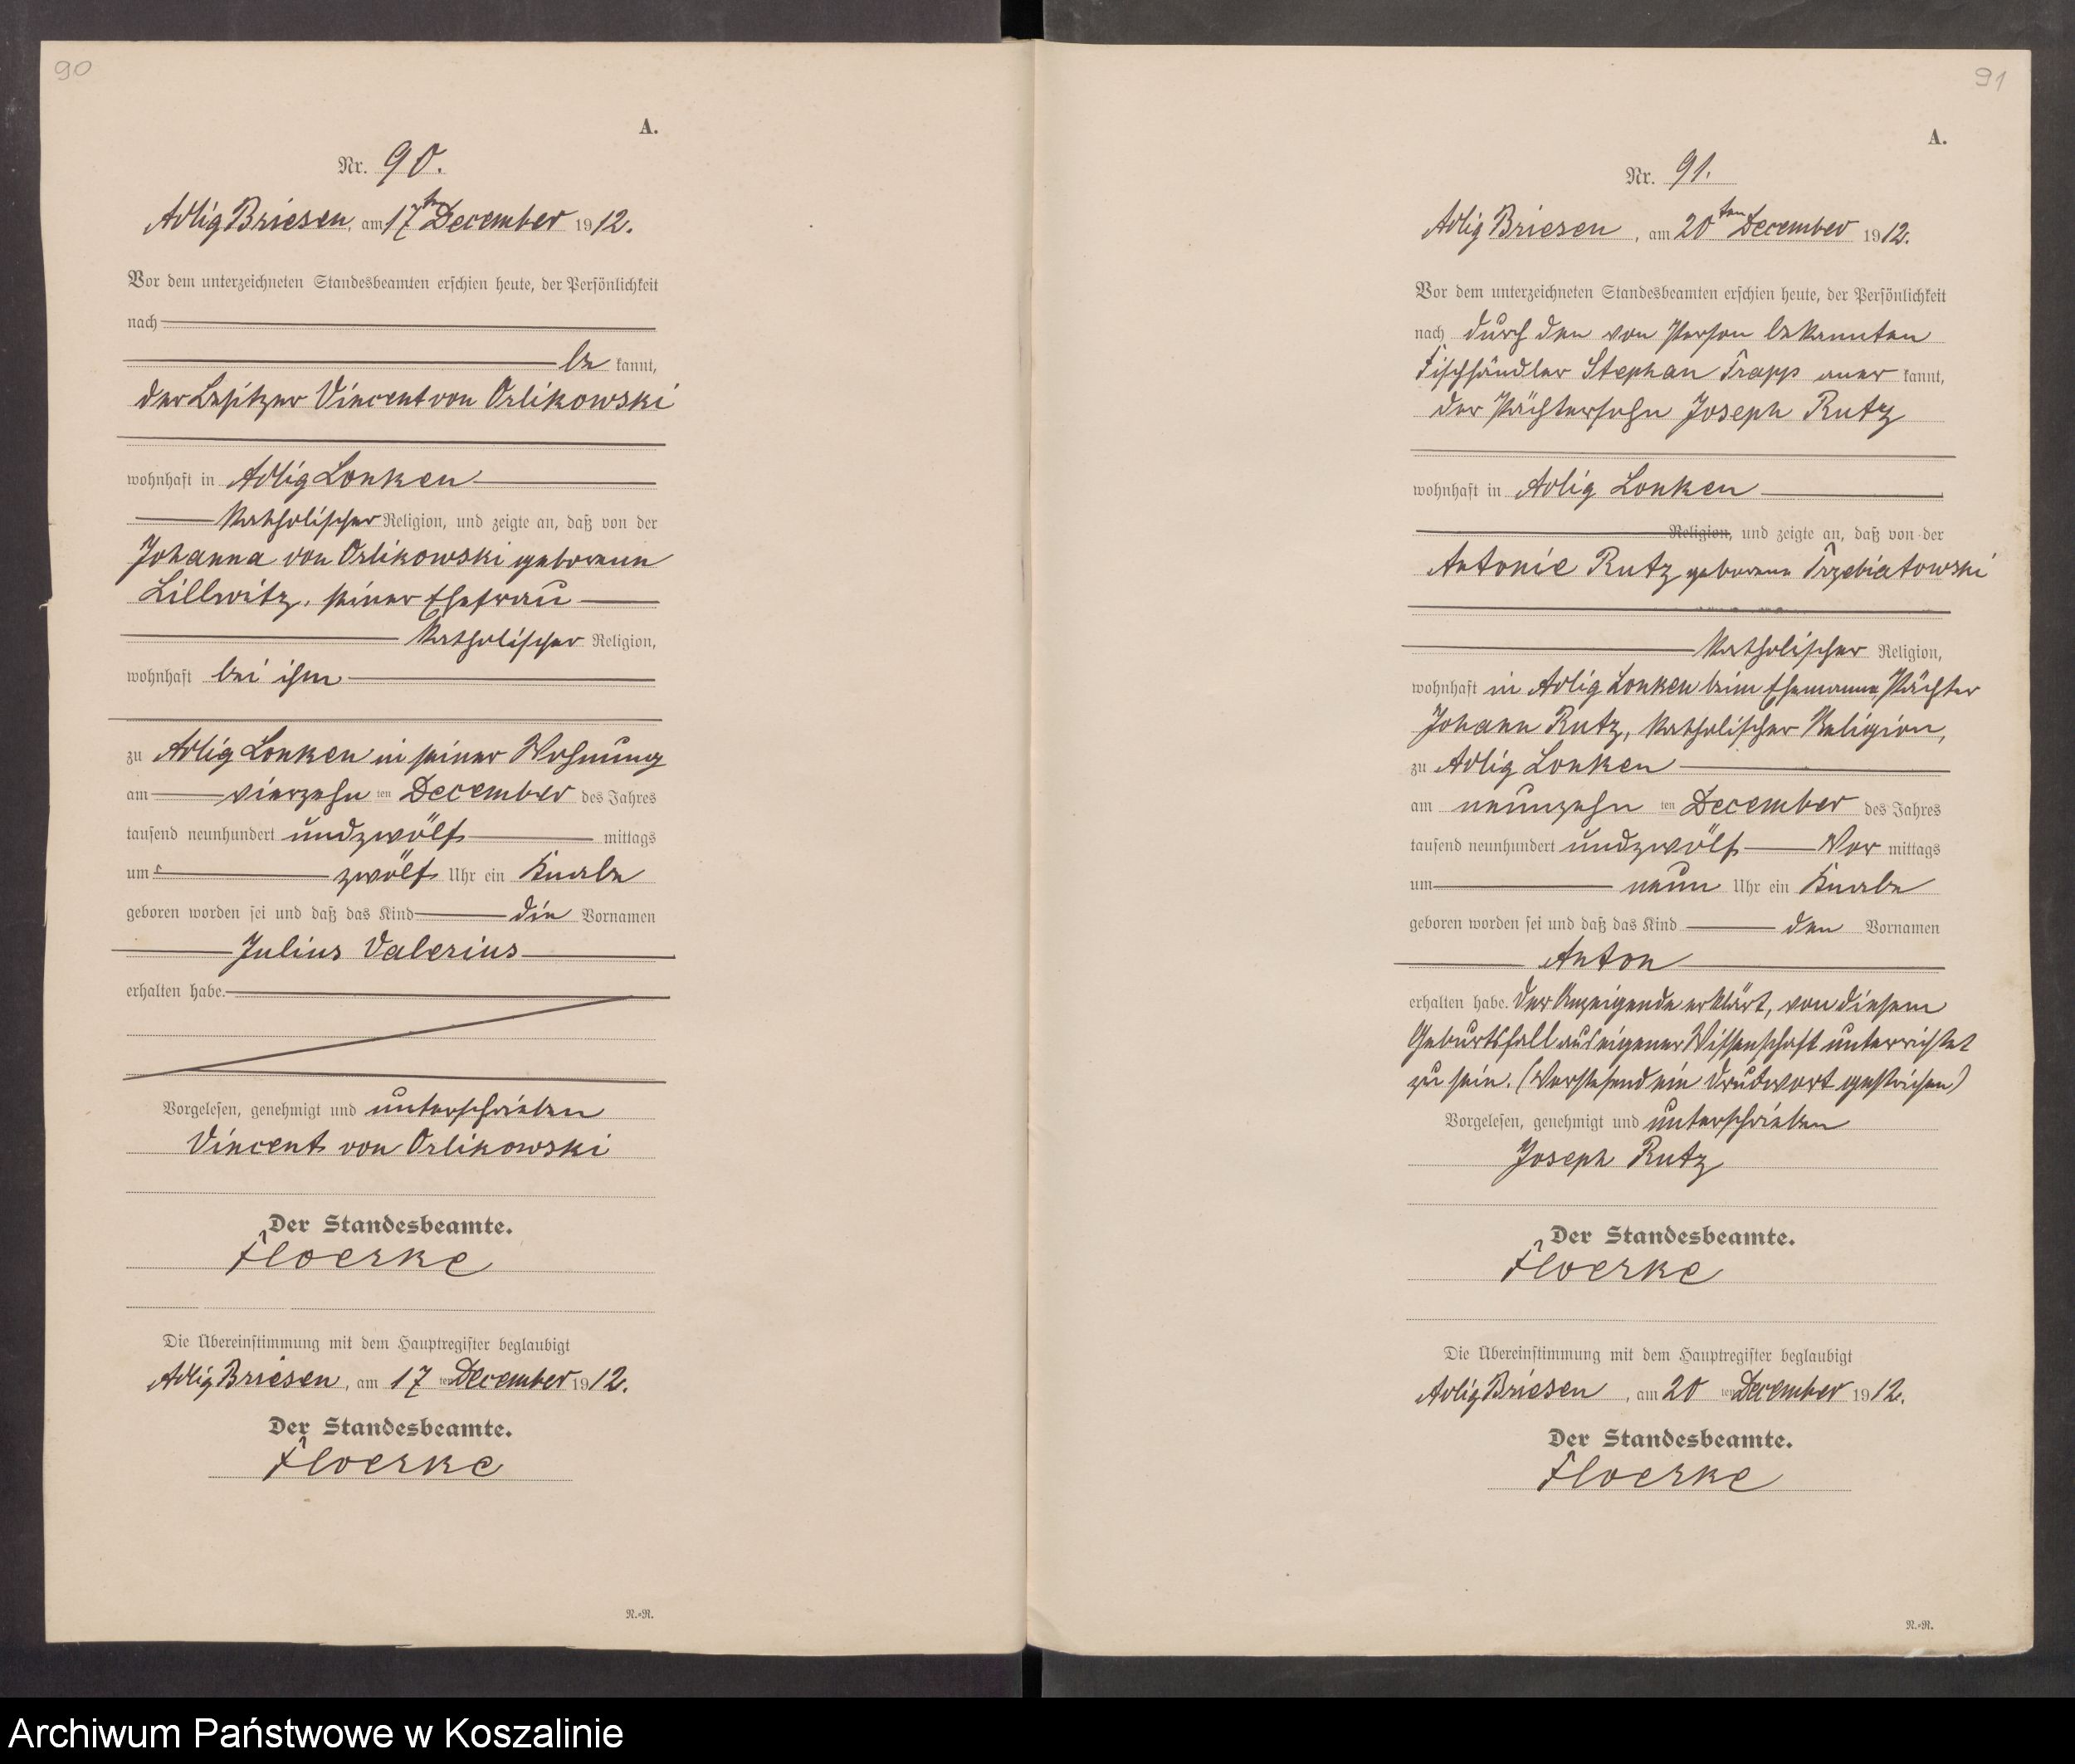 90
A.
Nr. 90.
Adlig Briesen, am 17ten December 1912.
Vor dem unterzeichneten Standesbeamten erschien heute, der Persönlichkeit
nach
be kannt,
der Besitzer Vincent von Orlikowski
wohnhaft in Adlig Lonken
katholischer Religion, und zeigte an, daß von der
Johanna von Orlikowski geborene
Lillwitz, seiner Ehefrau
katholischer Religion,
wohnhaft bei ihm
zu Adlig Lonken in seiner Wohnung
am vierzehn ten December des Jahres
tausend neunhundert und zwölf mittags
um zwölf Uhr ein Knabe
geboren worden sei und daß das Kind die Vornamen
Julius Valerius
erhalten habe.
Vorgelesen, genehmigt und unterschrieben
Vincent von Orlikowski
Der Standesbeamte.
Floerke
Die Übereinstimmung mit dem Hauptregister beglaubigt
Adlig Briesen, am 17 ten December 1912.
Der Standesbeamte.
Floerke
N.-R.
91
A.
Nr. 91.
Adlig Briesen, am 20ten December 1912.
Vor dem unterzeichneten Standesbeamten erschien heute, der Persönlichkeit
nach durch den von Person bekannten
Fischhändler Stephan Trapp aner kannt,
der Pächtersohn Joseph Rutz
wohnhaft in Adlig Lonken
Religion, und zeigte an, daß von der
Antonie Rutz geborene Trzebiatowski
katholischer Religion,
wohnhaft in Adlig Lonken beim Ehemanne, Pächter
Johann Rutz, katholischer Religion,
zu Adlig Lonken
am neunzehn ten December des Jahres
tausend neunhundert und zwölf Vor mittags
um neun Uhr ein Knabe
geboren worden sei und daß das Kind den Vornamen
Anton
erhalten habe. Der Anzeigende erklärt, von diesem
Geburtsfall aus eigener Wissenschaft unterrichtet
zu sein. (Vorstehend ein Druckwort gestrichen)
Vorgelesen, genehmigt und unterschrieben
Joseph Rutz
Der Standesbeamte.
Floerke
Die Übereinstimmung mit dem Hauptregister beglaubigt
Adlig Briesen, am 20 ten December 1912.
Der Standesbeamte.
Floerke
N.-R.
Archiwum Państwowe w Koszalinie